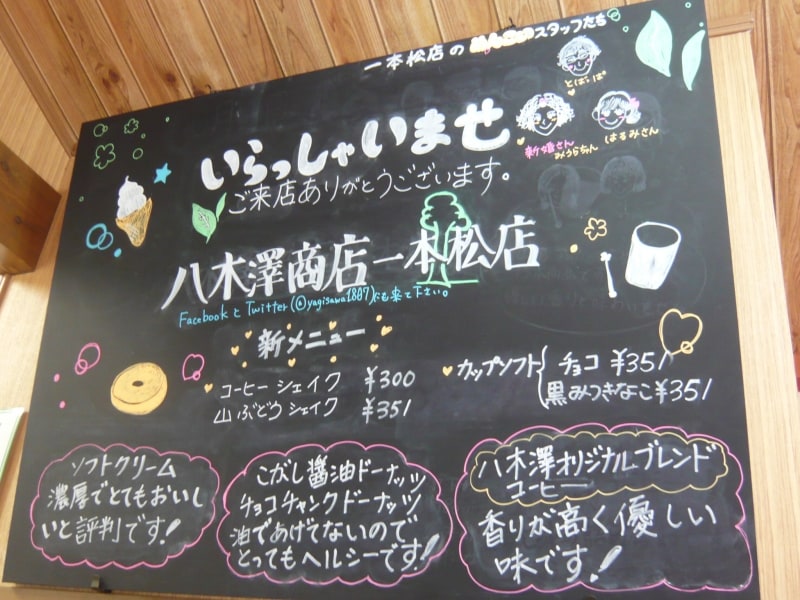 一本松店の スタッフたち
とばっぱ
新婚さん
みうらちゃん
はるみさん
いらっしゃいませ
ご来店ありがとうございます。
八木澤商店一本松店
FacebookとTwitter(@yagisawa1807)にも来て下さい。
新メニュー
コーヒーシェイク ¥300
山ぶどうシェイク ¥351
カップソフト チョコ ¥351
黒みつきなこ ¥351
ソフトクリーム
濃厚でとてもおいし
いと評判です!
こがし醤油ドーナッツ
チョコチャンクドーナッツ
油であげてないので
とってもヘルシーです!
八木澤オリジナルブレンド
コーヒー
香りが高く優しい
味です!